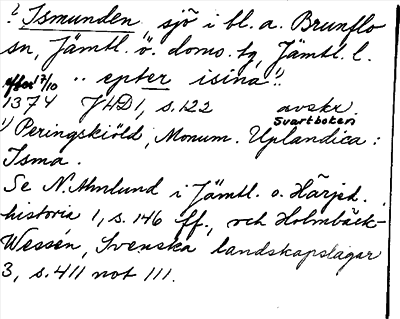 ? Ismunden sjö i bl. a. Brunflo
sn, Jämtl. ö. doms. tg, Jämtl. l.
efter 17/10 .. epter isina 1)
1374 JHD 1, s. 122 avskr. Svartboken
1) Peringskiöld, Monum. Uplandica:
Isma.
Se N. Ahnlund i Jämtl. o. Härjed.
historia 1, s. 146 ff., och Holmbäck-
Wessén, Svenska landskapslagar
3, s. 411 not 111.